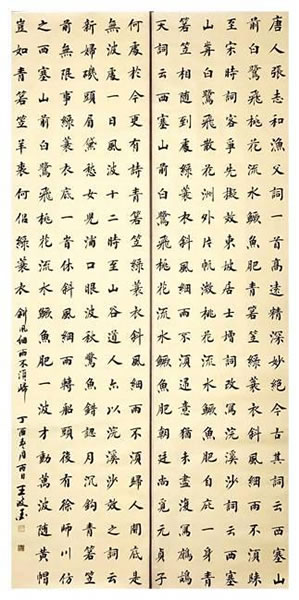 唐人張志和漁父詞一首高遠精深妙絶今古其詞云西塞山
前白鷺飛桃花流水鱖魚肥青箬笠綠蓑衣斜風細雨不須歸
至宋時詞客爭先擬效東坡居士增詞浣溪沙詞云西塞
山前白鷺飛散花洲外片帆微桃花流水鱖魚肥自庇一身青
箬笠相隨到處綠蓑衣斜風細雨不須歸遺意猶未盡復寓鷓鴣
天詞云西塞山前白鷺飛桃花流水鱖魚肥朝廷尚覓元貞子
何處於今更有詩青箬笠綠蓑衣斜風細雨不須歸人間底是
無波處一日風波十二時至山谷道人亦以浣溪沙之詞云
新婦磯頭眉黛愁女兒浦口眼波秋驚魚錯認月沉鈎青箬笠
前無限事綠蓑衣底一時休斜風細雨轉船頭後有徐師川仿
之西塞山前白鷺飛桃花流水鱖魚肥一波才動萬波隨黄帽
豈如青箬笠羊裘何似綠蓑衣斜風細雨不須歸 丁酉